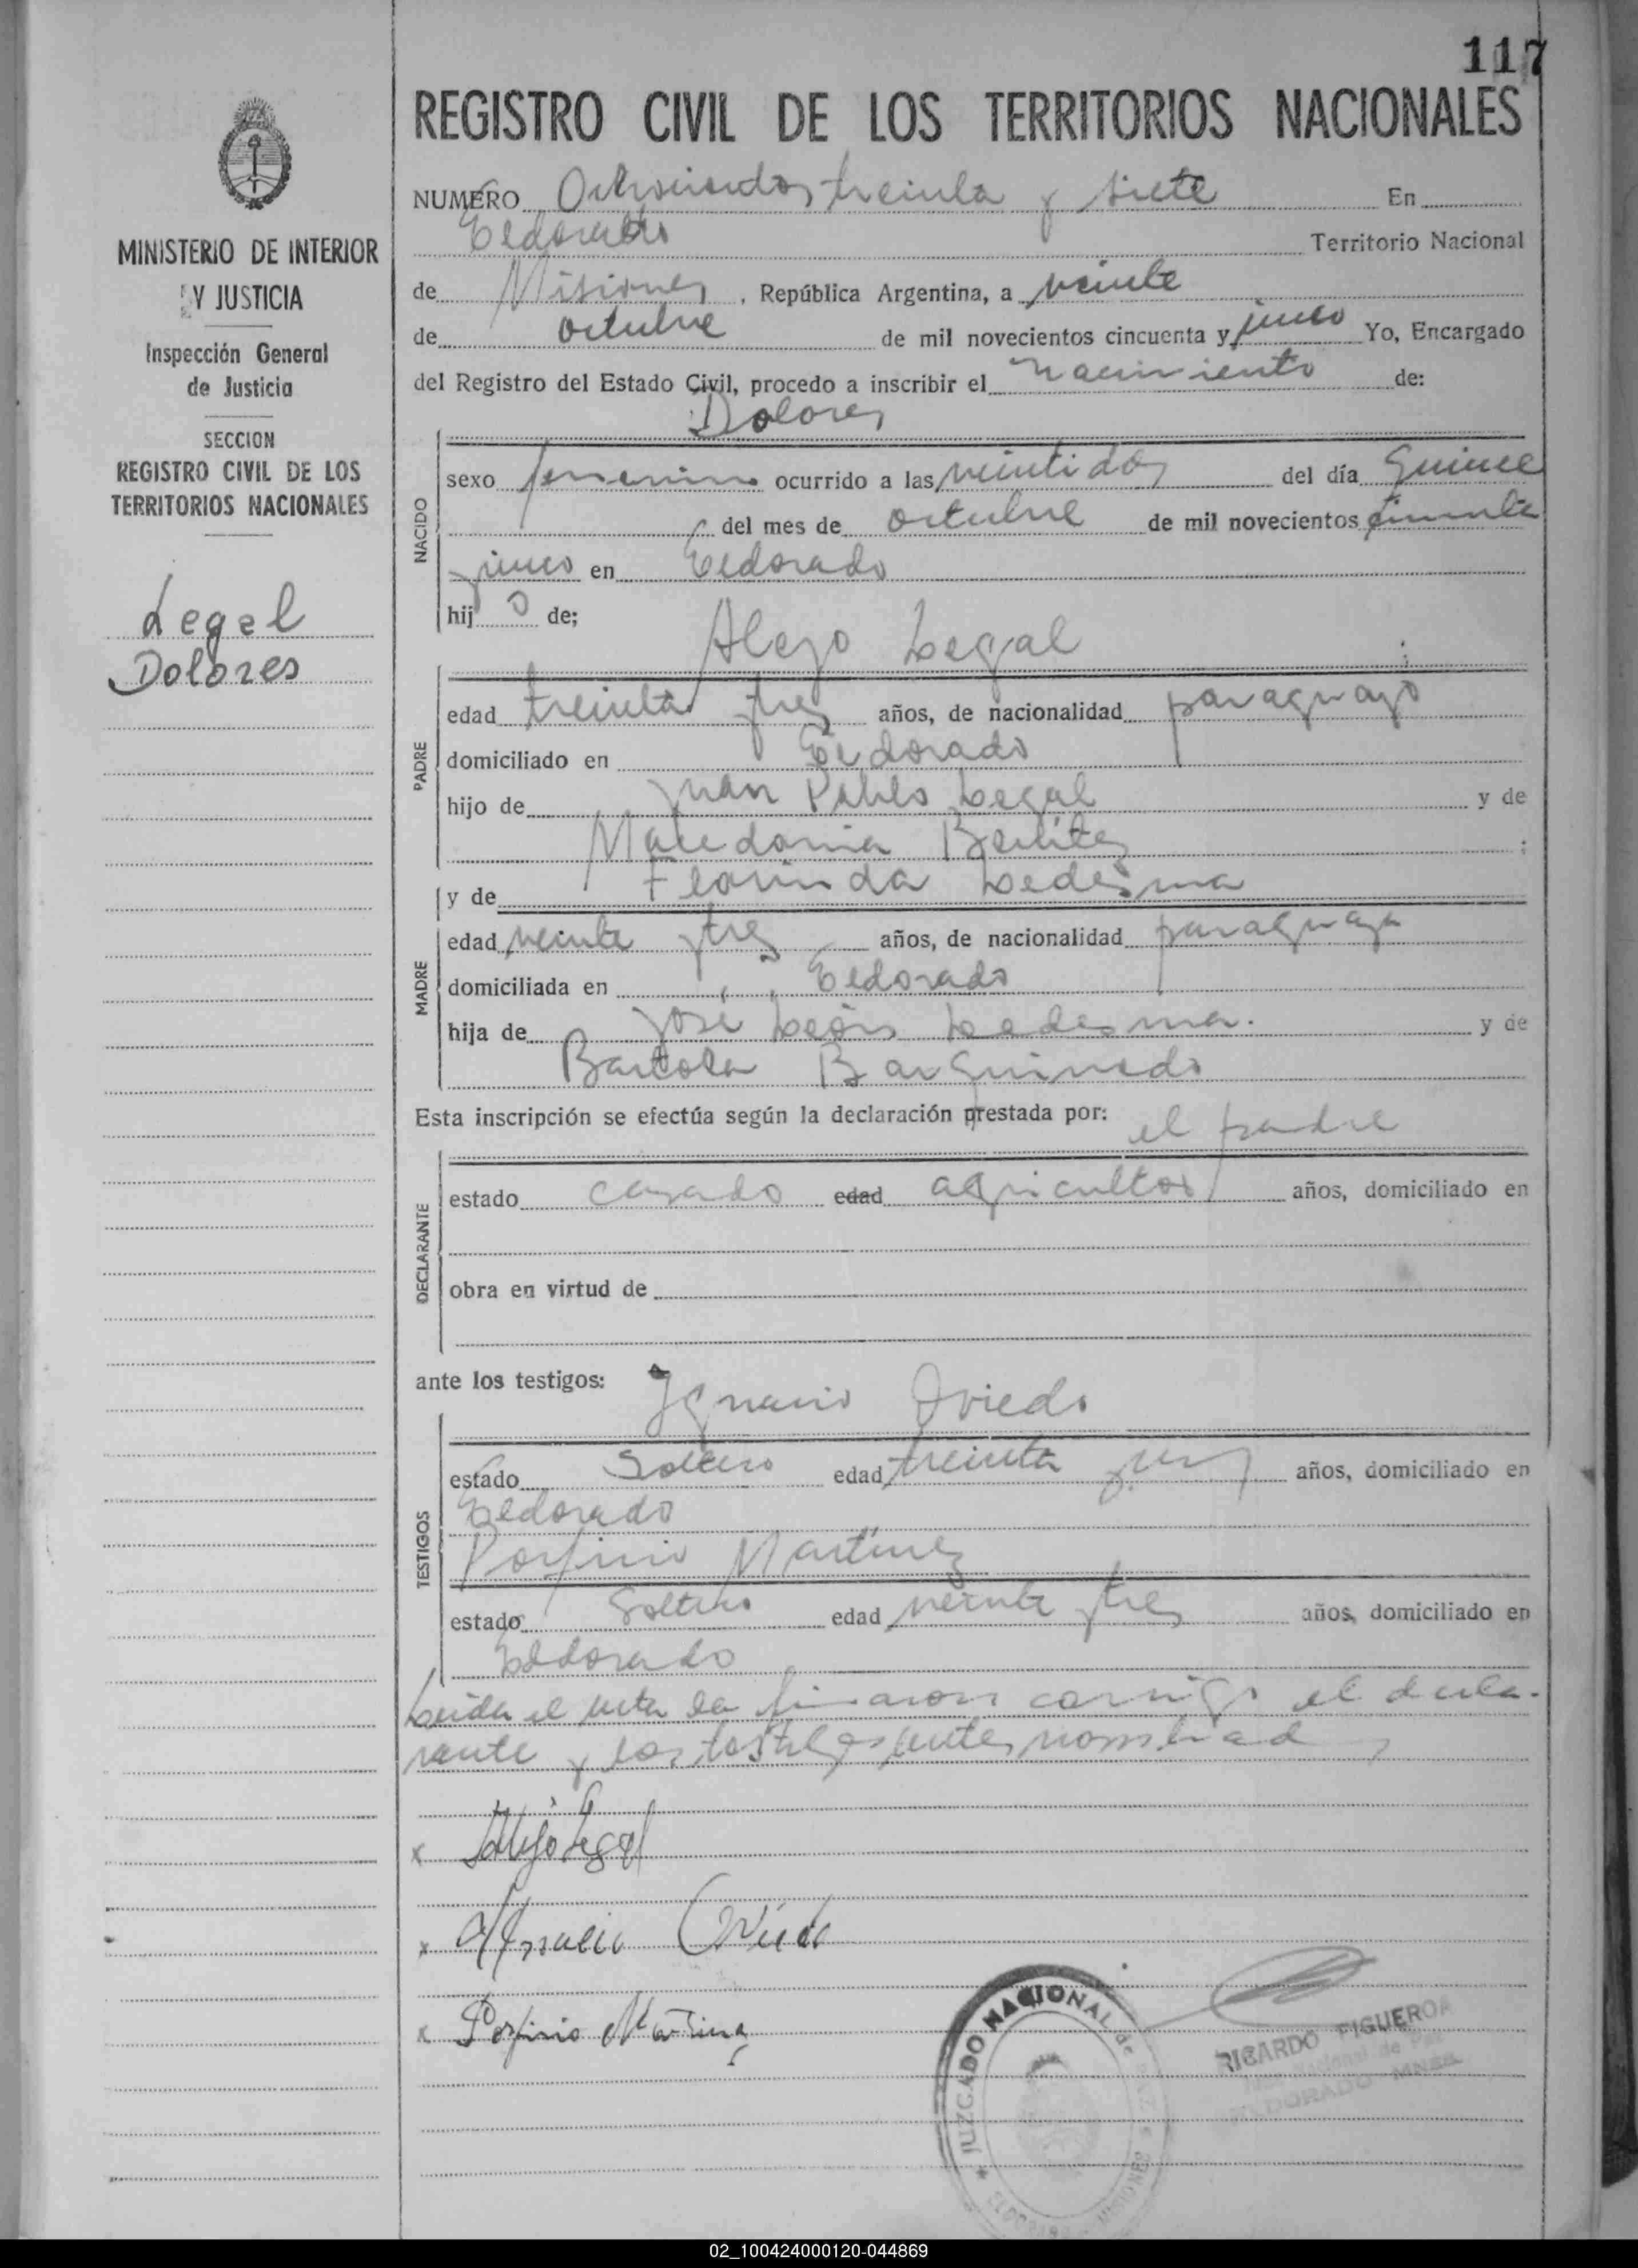 117
REGISTRO CIVIL DE LOS TERRITORIOS NACIONALES
MINISTERIO DE INTERIOR
Y JUSTICIA
Inspección General
de Justicia
SECCION
REGISTRO CIVIL DE LOS
TERRITORIOS NACIONALES
Legal
Dolores
NUMERO Ochocientos treinta y siete En
Eldorado Territorio Nacional
de Misiones, República Argentina, a veinte
de octubre de mil novecientos cincuenta y cinco Yo, Encargado
del Registro del Estado Civil, procedo a inscribir el nacimiento de:
Dolores
NACIDO
sexo femenino ocurrido a las veintidos del día quince
del mes de octubre de mil novecientos cincuenta
y cinco en Eldorado
hij de;
Alejo Legal ;
PADRE
edad treinta y tres años, de nacionalidad paraguayo
domiciliado en Eldorado
hijo de Juan Pablo Legal y de
Macedonia Benitez ;
y de Florinda Ledesma
MADRE
edad veinte y tres años, de nacionalidad paraguaya
domiciliada en Eldorado
hija de José León Ledesma. y de
Bartola Barquinedo
Esta inscripción se efectúa según la declaración prestada por: el padre
DECLARANTE
estado casado edad agricultor años, domiciliado en
obra en virtud de
ante los testigos: Ignacio Oviedo
TESTIGOS
estado Soltero edad treinta años, domiciliado en
Eldorado
Porfirio Martinez
estado Soltero edad veinte y tres años, domiciliado en
Eldorado
Leida el acta la firmaron conmigo el decla-
rante y los testigos antes nombrad
x Alejo Legal
x Ignacio Oviedo
x Porfirio Martinez
JUZGADO NACIONAL de
ELDORADO MISIONES
RICARDO FIGUEROA
ELDORADO MNES.
02_100424000120-044869